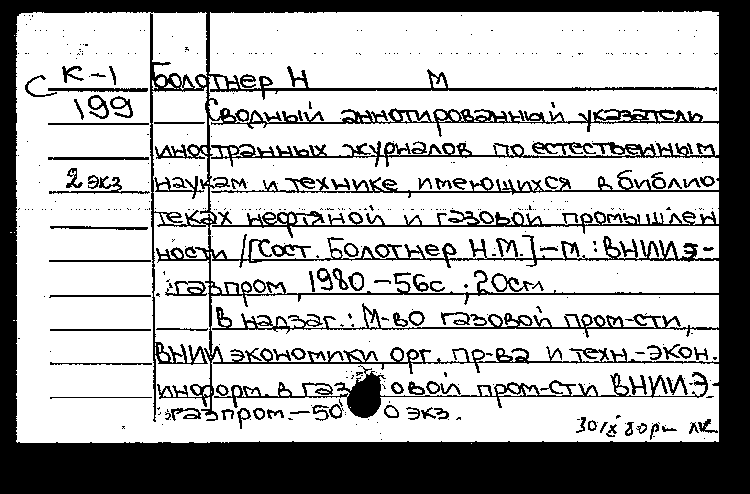 С К-1 Болотнер Н М
199 Сводный аннотированный указатель
иностранных журналов по естественным
2 экз наукам и технике, имеющихся в библио-
теках нефтяной и газовой промышлен
ности /[Сост. Болотнер Н.М.] – М. : ВНИИЭ-
газпром, 1980. – 56с. ; 20см.
В надзаг.: М-во газовой пром-сти,
ВНИИ экономики, орг. пр-ва и техн.-экон.
информ. в газовой пром-сти ВНИИЭ-
газпром. – 50 0 экз.